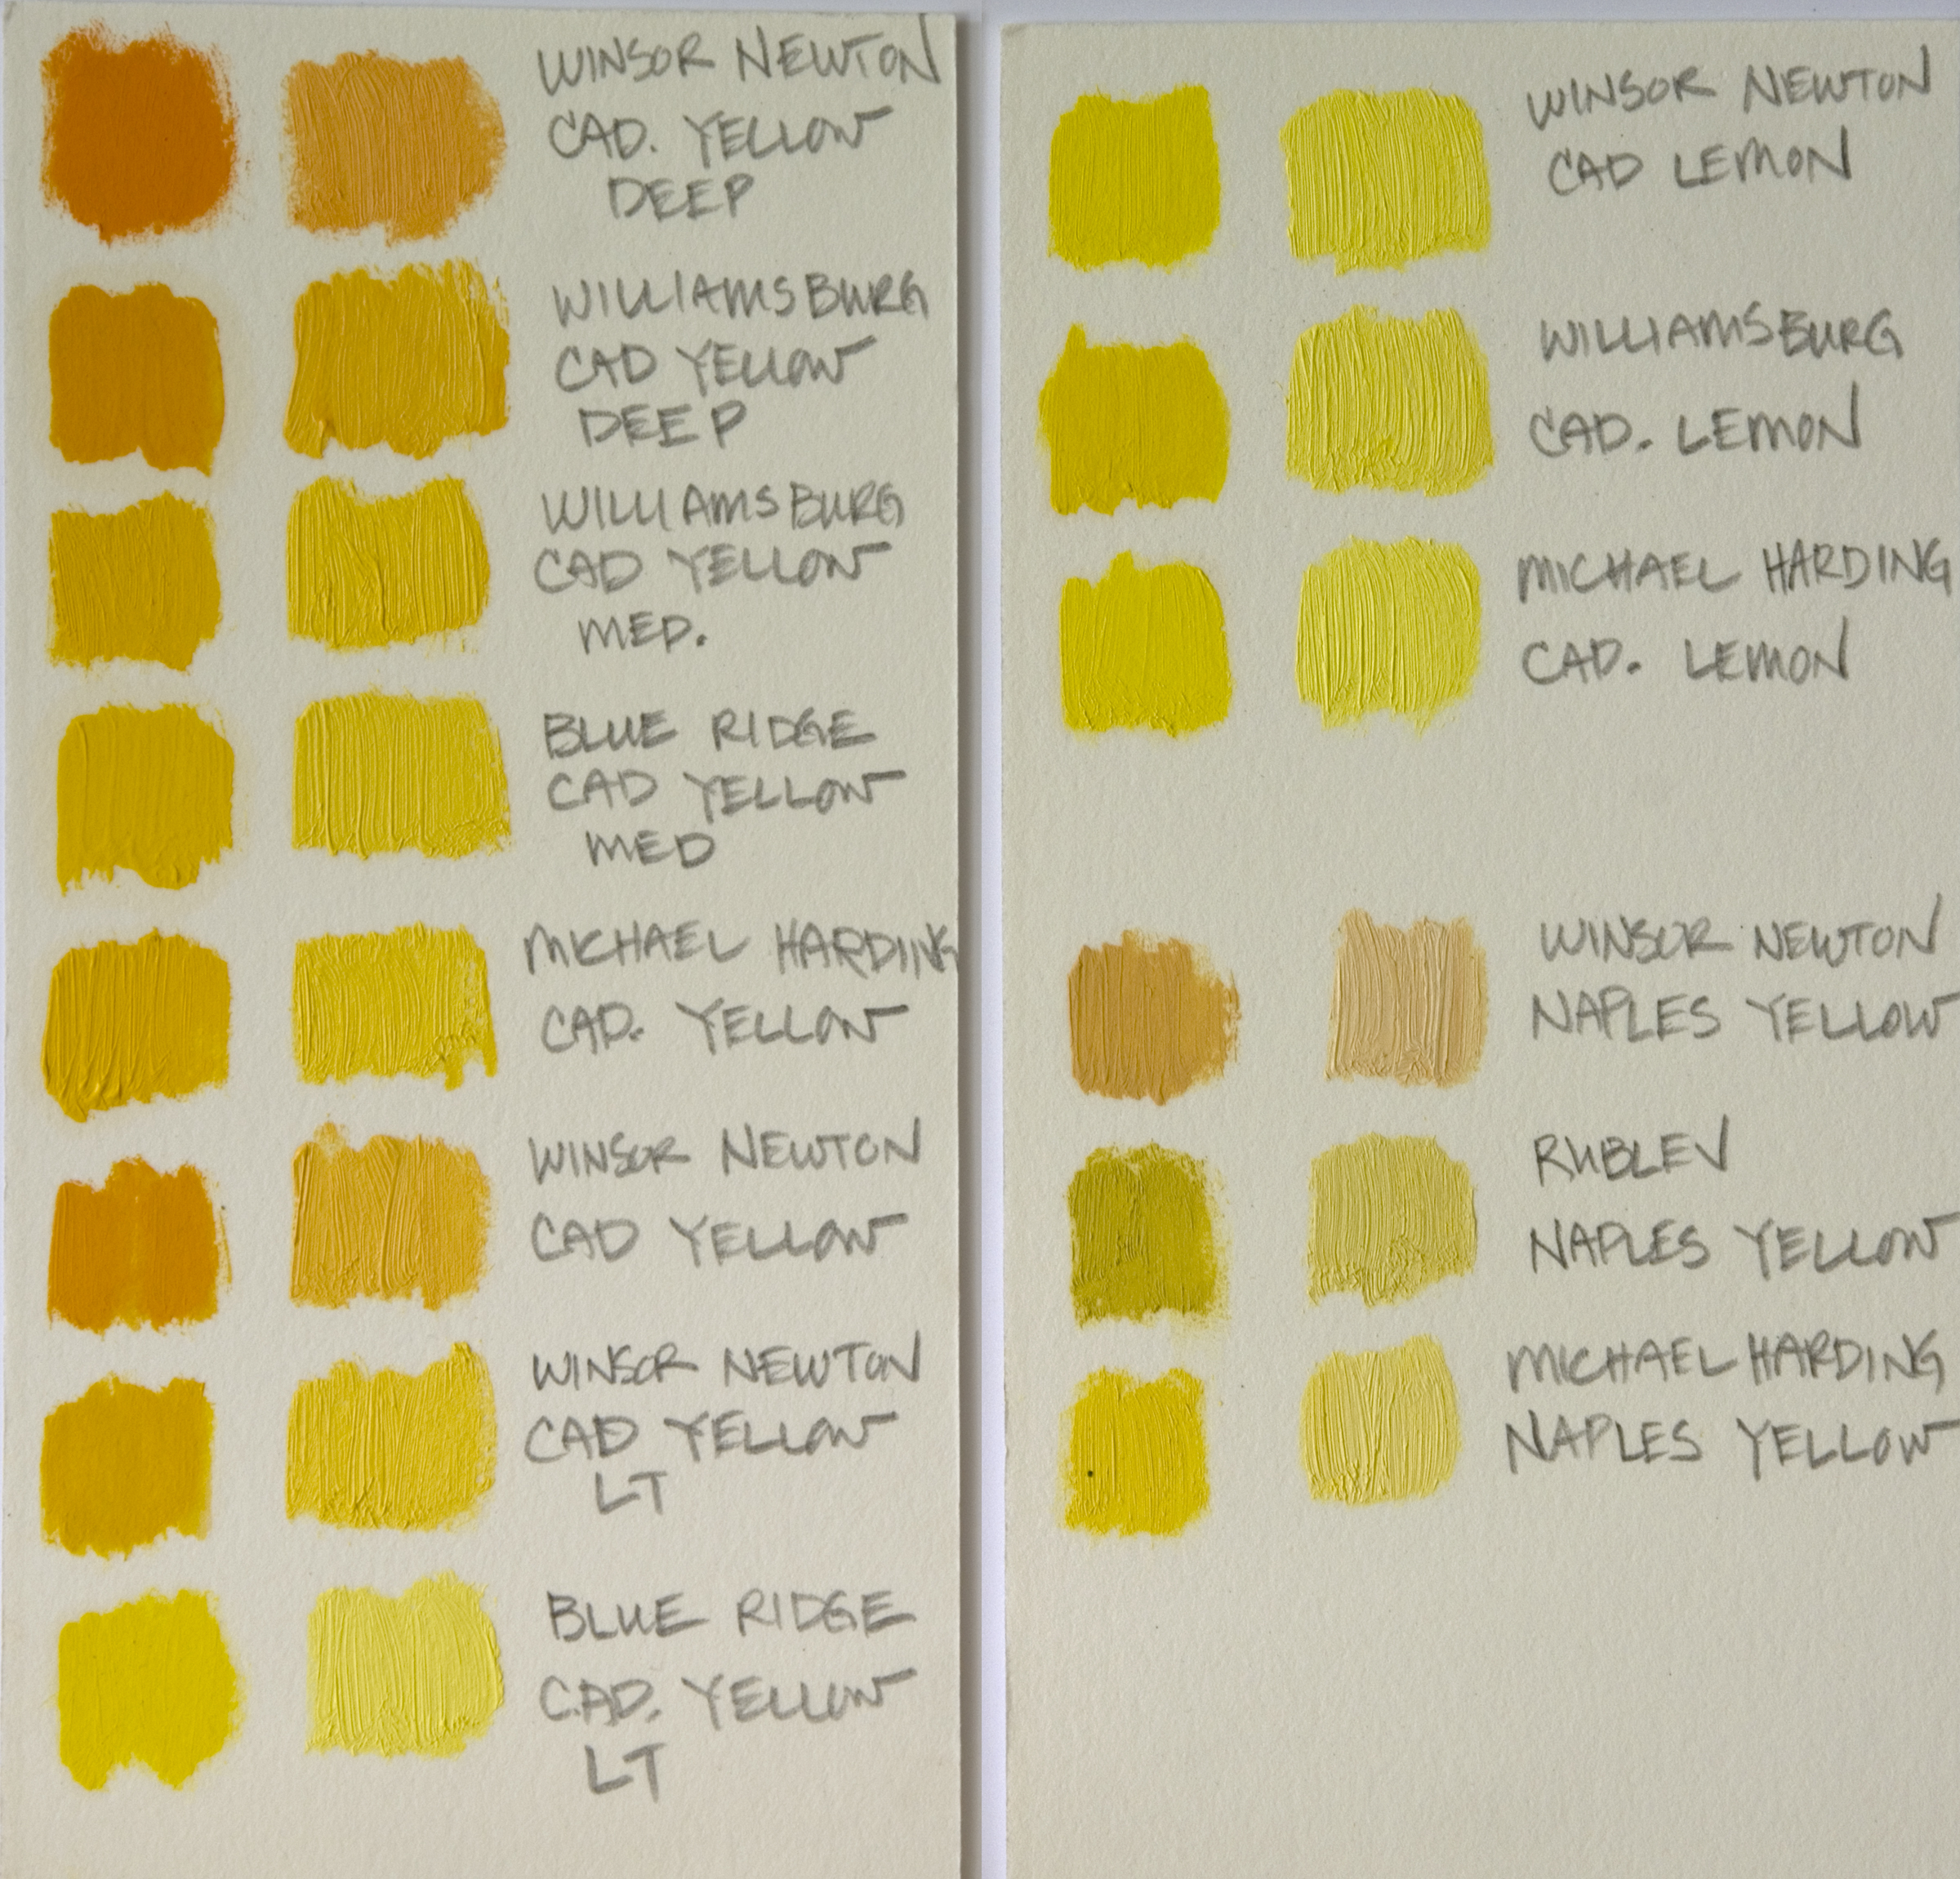 WINSOR NEWTON
CAD. YELLOW
DEEP
WILLIAMSBURG
CAD YELLOW
DEEP
WILLIAMSBURG
CAD YELLOW
MED.
BLUE RIDGE
CAD YELLOW
MED
MICHAEL HARDING
CAD. YELLOW
WINSOR NEWTON
CAD YELLOW
WINSOR NEWTON
CAD YELLOW
LT
BLUE RIDGE
CAD. YELLOW
LT
WINSOR NEWTON
CAD LEMON
WILLIAMSBURG
CAD. LEMON
MICHAEL HARDING
CAD. LEMON
WINSOR NEWTON
NAPLES YELLOW
RUBLEV
NAPLES YELLOW
MICHAEL HARDING
NAPLES YELLOW